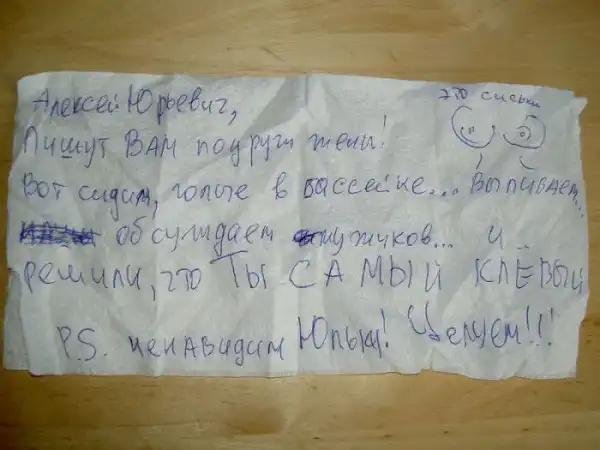 Алексей Юрьевич,
это сиськи
Пишут ВАМ подруги жены!
Вот сидим, голые в бассейне... Выпиваем...
обсуждаем мужчиков... и...
решили, что ТЫ САМЫЙ КЛЁВЫЙ
P.S. ненавидим Юльку! Целуем!!!